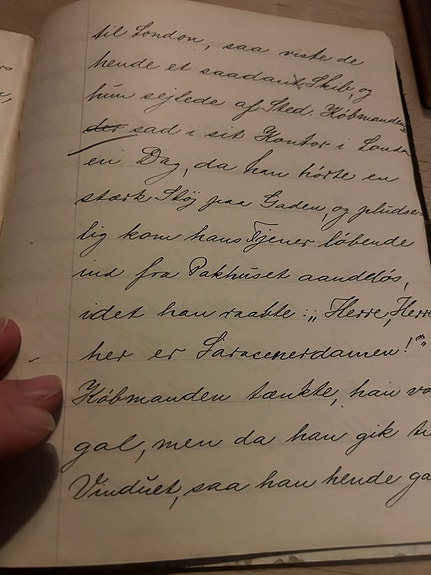 til London, saa viste de
hende et saadant Skib, og
hun sejlede af Sted. Købmanden
der sad i sit Kontor i London
en Dag, da han hørte en
stærk Støj paa Gaden, og pludse-
lig kom hans Tjener løbende
ind fra Pakhuset aandeløs,
idet han raabte: „Herre, Herre
her er Saracenerdamen!"
Købmanden tænkte, han va
gal, men da han gik ti
Vinduet, saa han hende ga